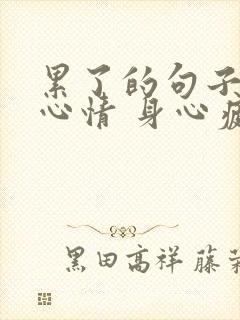 累了的句子
心情 身心疲
黑田高祥 藤